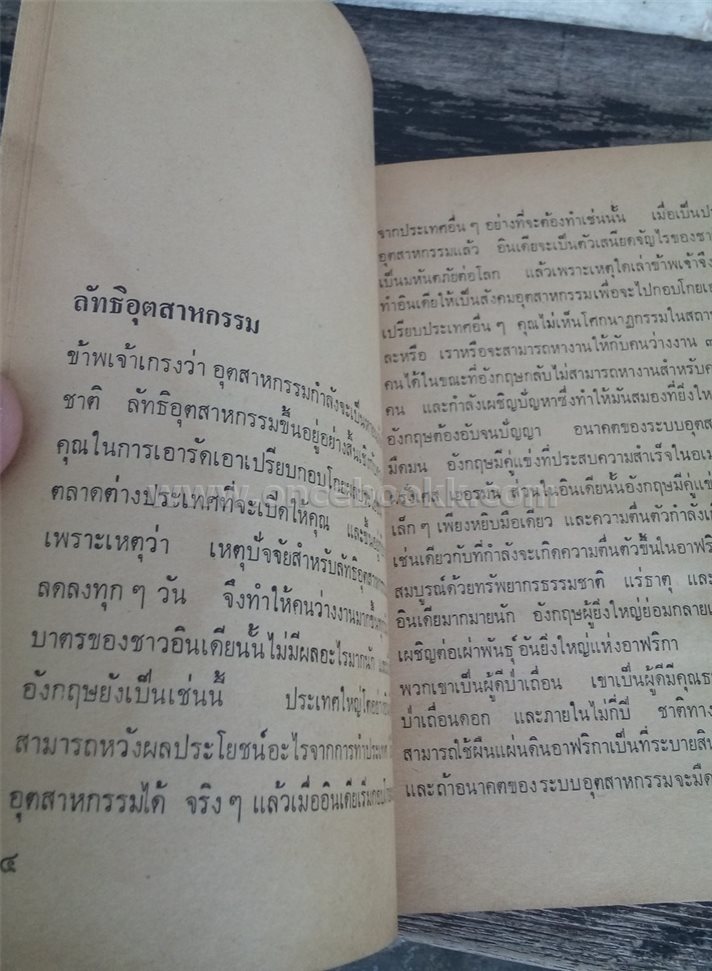 ลัทธิอุตสาหกรรม
ข้าพเจ้าเกรงว่า อุตสาหกรรมกำลังจะเป็น
ชาติ ลัทธิอุตสาหกรรมขึ้นอยู่อย่างสิ้นเชิงกับ
คุณในการเอารัดเอาเปรียบกอบโกย
ตลาดต่างประเทศที่จะเปิดให้คุณ และ
เพราะเหตุว่า เหตุปัจจัยสำหรับลัทธิอุตสาหกรรม
ลดลงทุก ๆ วัน จึงทำให้คนว่างงานมากขึ้น
บาตรของชาวอินเดียนั้นไม่มีผลอะไรมากนัก
อังกฤษยังเป็นเช่นนี้ ประเทศใหญ่โตอย่าง
สามารถหวังผลประโยชน์อะไรจากการทำประเทศ
อุตสาหกรรมได้ จริง ๆ แล้วเมื่ออินเดียเริ่มกอบโกย
๔
จากประเทศอื่น ๆ อย่างที่จะต้องทำเช่นนั้น เมื่อเป็น
อุตสาหกรรมแล้ว อินเดียจะเป็นตัวเสนียดจัญไรของ
เป็นมหันตภัยต่อโลก แล้วเพราะเหตุใดเล่าข้าพเจ้าจึง
ทำอินเดียให้เป็นสังคมอุตสาหกรรมเพื่อจะไปกอบโกย
เปรียบประเทศอื่น ๆ คุณไม่เห็นโศกนาฏกรรมใน
ละหรือ เราหรือจะสามารถหางานให้กับคนว่างงาน ๓
คนได้ในขณะที่อังกฤษกลับไม่สามารถหางานสำหรับ
คน และกำลังเผชิญปัญหาซึ่งทำให้มันสมองที่ยิ่งใหญ่
อังกฤษต้องอับจนปัญญา อนาคตของระบบ
มืดมน อังกฤษมีคู่แข่งที่ประสบความสำเร็จใน
ฝรั่งเศส เยอรมัน ส่วนในอินเดียนั้นอังกฤษมีคู่แข่ง
เล็ก ๆ เพียงหยิบมือเดียว และความตื่นตัวกำลัง
เช่นเดียวกับที่กำลังจะเกิดความตื่นตัวขึ้นใน
สมบูรณ์ด้วยทรัพยากรธรรมชาติ แร่ธาตุ และ
อินเดียมากมายนัก อังกฤษผู้ยิ่งใหญ่ย่อมกลาย
เผชิญต่อเผ่าพันธุ์อันยิ่งใหญ่แห่งอาฟริกา
พวกเขาเป็นผู้ดีป่าเถื่อน เขาเป็นผู้ดีมีคุณ
ป่าเถื่อนดอก และภายในไม่กี่ปี ชาติทาง
สามารถใช้ผืนแผ่นดินอาฟริกาเป็นที่ระบาย
และถ้าอนาคตของระบบอุตสาหกรรมจะมืด